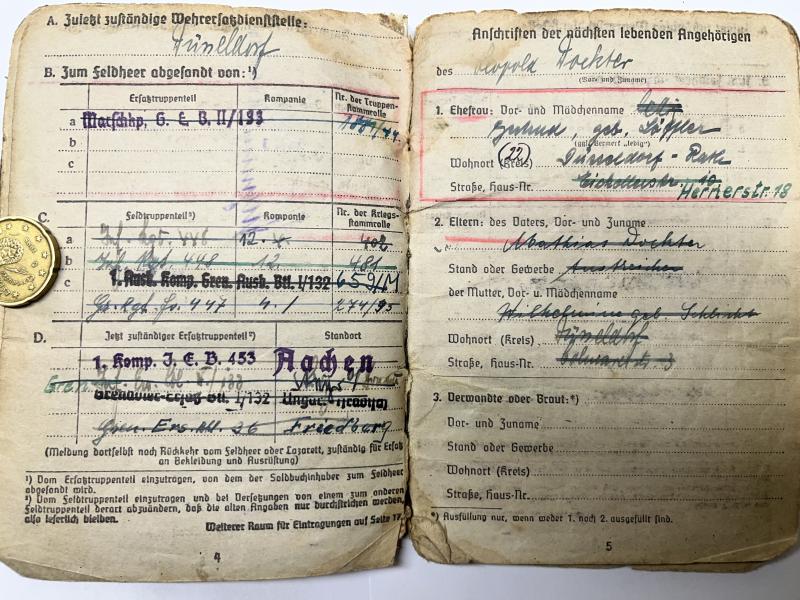 A. Zuletzt zuständige Wehrersatzdienststelle:
Düsseldorf
B. Zum Feldheer abgesandt von: ¹)
Ersatztruppenteil Kompanie Nr. der Truppenstammrolle
a Marschkp. G. E. B. II/193
b
c
C. Feldtruppenteil ²) Kompanie Nr. der Kriegsstammrolle
a Inf. Rgt. 448 12. 402
b Inf. Rgt. 448 12. 481
c 1. Ausb. Komp. Gren. Ausb. Btl. I/132 659/M
Gr. Rgt. 447 4./ 274/95
D. Jetzt zuständiger Ersatztruppenteil Standort
1. Komp. I. E. B. 453 Aachen
Grenadier-Ersatz-Btl. I/132
Gren. Ers. Btl. 36 Friedberg
(Meldung dortselbst nach Rückkehr vom Feldheer oder Lazarett, zuständig für Ersatz
an Bekleidung und Ausrüstung)
¹) Vom Ersatztruppenteil einzutragen, von dem der Soldbuchinhaber zum Feldheer
abgesandt wird.
²) Vom Feldtruppenteil einzutragen und bei Versetzungen von einem zum anderen
Feldtruppenteil derart abzuändern, daß die alten Angaben nur durchstrichen werden,
also leserlich bleiben.
Weiterer Raum für Eintragungen auf Seite 17
4
Anschriften der nächsten lebenden Angehörigen
des Leopold Dockter
(Vor- und Zuname)
1. Ehefrau: Vor- und Mädchenname
Gertrud, geb. Löffler
(ggf. Vermerk „ledig")
Wohnort (Kreis) (22) Düsseldorf - Rath
Straße, Haus-Nr. Hernerstr. 18
2. Eltern: des Vaters, Vor- und Zuname
Mathias Dockter
Stand oder Gewerbe Anstreicher
der Mutter, Vor- u. Mädchenname
Wilhelmine geb.
Wohnort (Kreis) Düsseldorf
Straße, Haus-Nr.
3. Verwandte oder Braut: *)
Vor- und Zuname
Stand oder Gewerbe
Wohnort (Kreis)
Straße, Haus-Nr.
*) Ausfüllung nur, wenn weder 1. noch 2. ausgefüllt sind.
5